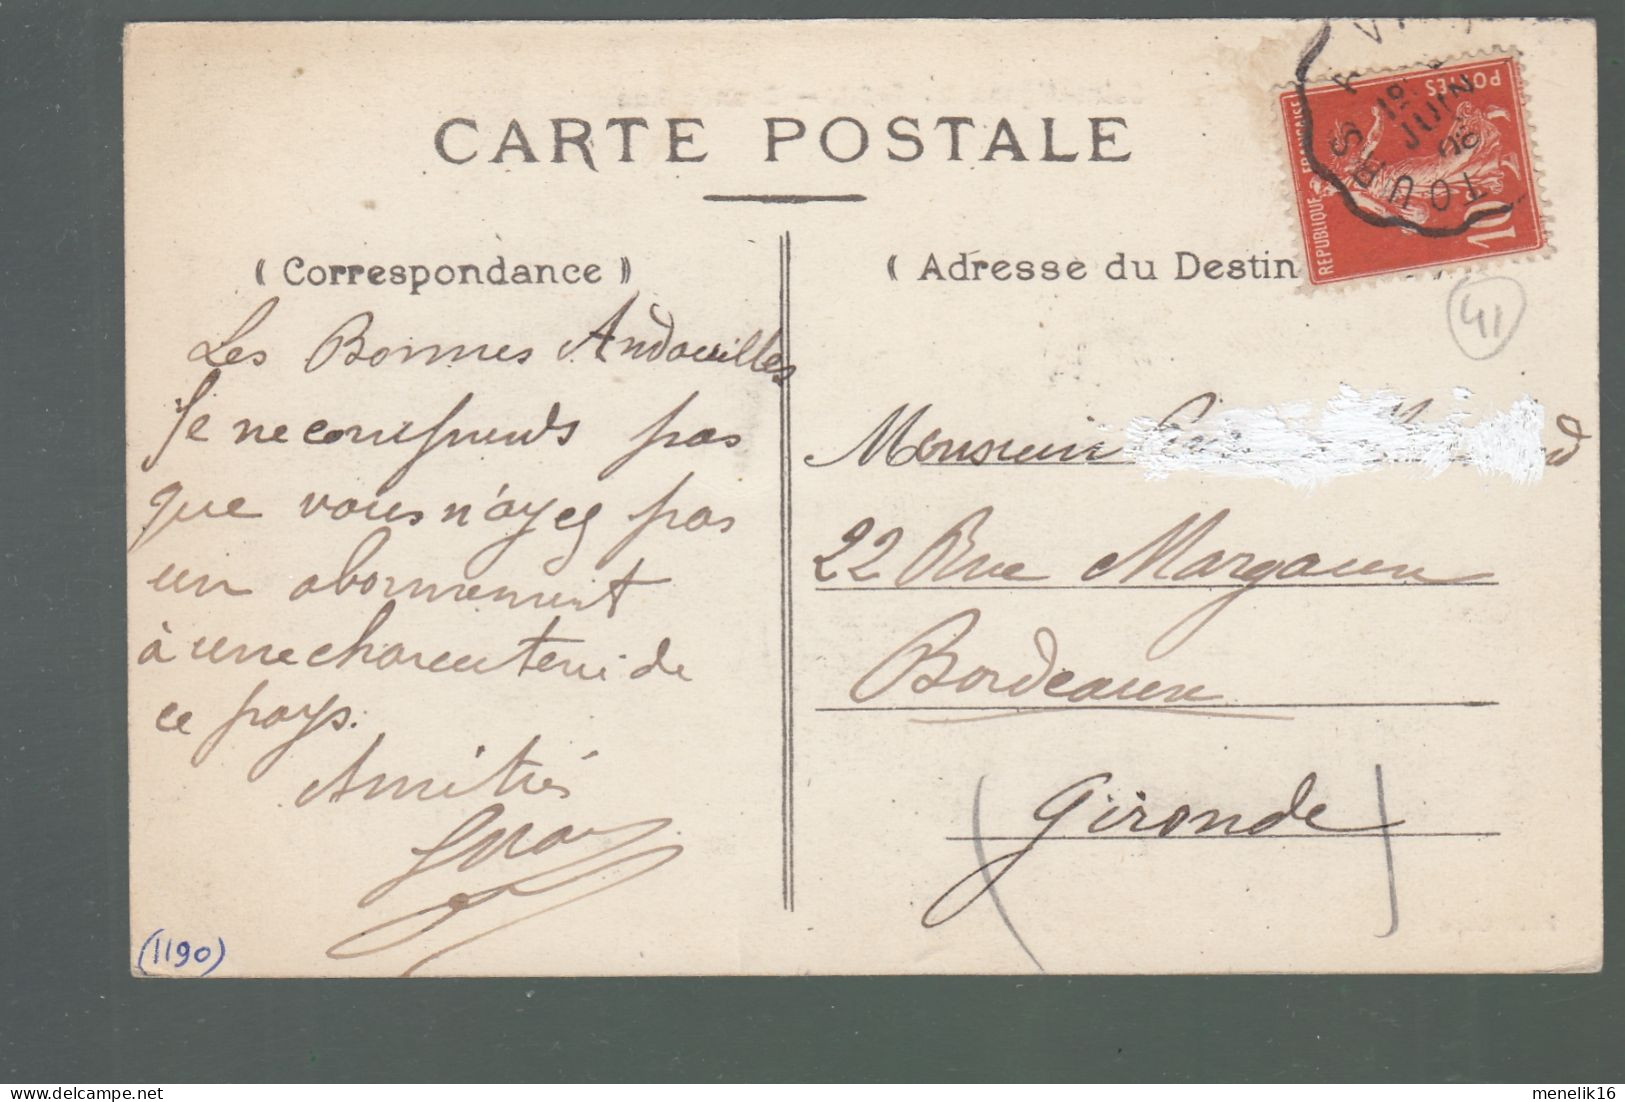 CARTE POSTALE
( Correspondance )
Les Bonnes Andouilles
Je ne comprends pas
que vous n'ayez pas
un abonnement
à une charcuterie de
ce pays.
Amitiés
(1190)
( Adresse du Destin
Monsieur
22 Rue Margaux
Bordeaux
(Gironde)
41
REPUBLIQUE FRANÇAISE
POSTES
10
TOURS A
JUIN
menelik16